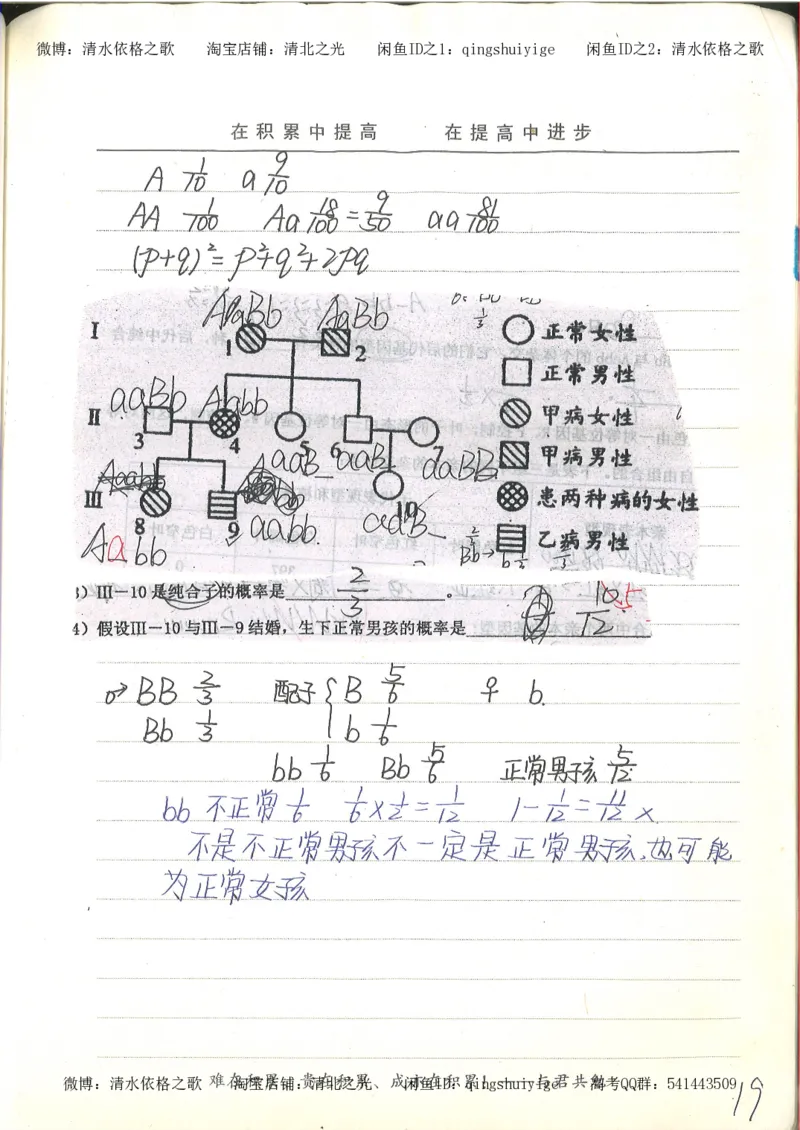 微博：清水依格之歌 淘宝店铺：清北之光 闲鱼ID之1：qingshuiyige 闲鱼ID之2：清水依格之歌
在积累中提高 在提高中进步
A 1/10 a 9/10
AA 1/100 Aa 18/100 = 9/50 aa 81/100
(p+q)²=p²+q²+2pq
AaBb AaBb
1/3
Ⅰ 1 2 正常女性
正常男性
aaBb Aabb
Ⅱ 3 4 5 6 7 甲病女性
aaB_ aaB_ aaBB
甲病男性
患两种病的女性
Ⅲ 8 9 10
Aabb aabb aaB_
乙病男性
3）Ⅲ－10 是纯合子的概率是 2/3 。
4）假设Ⅲ－10 与Ⅲ－9 结婚，生下正常男孩的概率是 5/12
♂ BB 2/3 配子 B 5/6 ♀ b.
Bb 1/3 b 1/6
bb 1/6 Bb 5/6 正常男孩 5/12
bb 不正常 1/6 1/6×1/2=1/12 1-1/12=11/12 ×
不是不正常男孩不一定是正常男孩,也可能
为正常女孩
微博：清水依格之歌 淘宝店铺：清北之光 闲鱼ID：qingshuiyige 高考QQ群：541443509
19